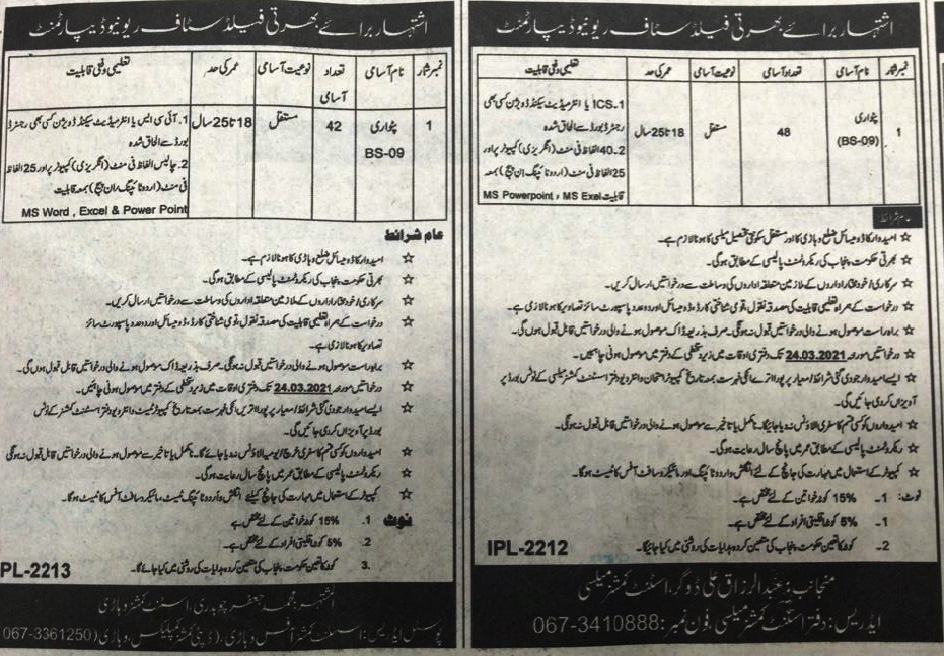 اشتہار برائے بھرتی فیلڈ سٹاف ریونیو ڈیپارٹمنٹ
نمبر شمار نام آسامی تعداد آسامی نوعیت آسامی عمر کی حد تعلیمی و فنی قابلیت
1 پٹواری (BS-09) 48 مستقل 18 تا 25 سال
1۔ ICS یا انٹرمیڈیٹ سیکنڈ ڈویژن کسی بھی
رجسٹرڈ بورڈ سے الحاق شدہ
2۔ 40 الفاظ فی منٹ (انگریزی) کمپیوٹر پر اور
25 الفاظ فی منٹ (اردو ٹائپنگ ان پیج) بمعہ
قابلیت MS Powerpoint ، MS Exel
عام شرائط
☆ امیدوار کا ڈومیسائل ضلع وہاڑی کا اور مستقل سکونتی تحصیل میلسی کا ہونا لازم ہے۔
☆ بھرتی حکومت پنجاب کی ریکروٹمنٹ پالیسی کے مطابق ہوگی۔
☆ سرکاری / خود مختار اداروں کے ملازمین متعلقہ اداروں کی وساطت سے درخواستیں ارسال کریں۔
☆ درخواست کے ہمراہ تعلیمی قابلیت کی مصدقہ نقول، قومی شناختی کارڈ، ڈومیسائل اور دو عدد پاسپورٹ سائز تصاویر کا ہونا لازمی ہے۔
☆ براہ راست موصول ہونے والی درخواستیں قبول نہ ہونگی۔ صرف بذریعہ ڈاک موصول ہونے والی درخواستیں قابل قبول ہوں گی۔
☆ درخواستیں مورخہ 24.03.2021 تک دفتری اوقات میں زیر دستخطی کے دفتر میں موصول ہونی چاہئیں۔
☆ ایسے امیدوار جو دی گئی شرائط / معیار پر پورا اترے انکی فہرست بمعہ تاریخ کمپیوٹر امتحان و انٹرویو دفتر اسسٹنٹ کمشنر میلسی کے نوٹس بورڈ پر
آویزاں کر دی جائیں گی۔
☆ امیدواروں کو کسی قسم کا سفری الاؤنس نہ دیا جائیگا۔ نامکمل یا تاخیر سے موصول ہونے والی درخواستیں قابل قبول نہ ہوگی۔
☆ ریکروٹمنٹ پالیسی کے مطابق عمر میں پانچ سال رعایت ہوگی۔
☆ کمپیوٹر کے استعمال میں مہارت کی جانچ کے لئے انگلش و اردو ٹائپنگ اور مائیکرو سافٹ آفس کا ٹیسٹ ہوگا۔
نوٹ: 1۔ 15% کوٹہ خواتین کے لئے مختص ہے۔
1۔ 5% کوٹہ اقلیتی افراد کے لئے مختص ہے۔
2۔ کوٹہ کا تعین حکومت پنجاب کی متعین کردہ ہدایات کی روشنی میں کیا جائیگا۔
IPL-2212
منجانب: عبدالرزاق علی ڈوگر، اسسٹنٹ کمشنر میلسی
ایڈریس: دفتر اسسٹنٹ کمشنر میلسی، فون نمبر: 067-3410888
اشتہار برائے بھرتی فیلڈ سٹاف ریونیو ڈیپارٹمنٹ
نمبر شمار نام آسامی تعداد آسامی نوعیت آسامی عمر کی حد تعلیمی و فنی قابلیت
1 پٹواری BS-09 42 مستقل 18 تا 25 سال
1۔ آئی سی ایس یا انٹرمیڈیٹ سیکنڈ ڈویژن کسی بھی رجسٹرڈ
بورڈ سے الحاق شدہ
2۔ چالیس الفاظ فی منٹ (انگریزی) کمپیوٹر پر اور 25 الفاظ
فی منٹ (اردو ٹائپنگ، ان پیج) بمعہ قابلیت
MS Word , Excel & Power Point
عام شرائط
☆ امیدوار کا ڈومیسائل ضلع وہاڑی کا ہونا لازم ہے۔
☆ بھرتی حکومت پنجاب کی ریکروٹمنٹ پالیسی کے مطابق ہوگی۔
☆ سرکاری / خود مختار اداروں کے ملازمین متعلقہ اداروں کی وساطت سے درخواستیں ارسال کریں۔
☆ درخواست کے ہمراہ تعلیمی قابلیت کی مصدقہ نقول، قومی شناختی کارڈ، ڈومیسائل اور دو عدد پاسپورٹ سائز
تصاویر کا ہونا لازمی ہے
☆ براہ راست موصول ہونے والی درخواستیں قبول نہ ہونگی۔ صرف بذریعہ ڈاک موصول ہونے والی درخواستیں قابل قبول ہوں گی۔
☆ درخواستیں مورخہ 24.03.2021 تک دفتری اوقات میں زیر دستخطی کے دفتر میں موصول ہونی چاہئیں۔
☆ ایسے امیدوار جو دی گئی شرائط / معیار پر پورا اتریں، انکی فہرست بمعہ تاریخ کمپیوٹر ٹیسٹ و انٹرویو دفتر اسسٹنٹ کمشنر کے نوٹس
بورڈ پر آویزاں کر دی جائیں گی۔
☆ امیدواروں کو کسی قسم کا سفری خرچ / یومیہ الاؤنس نہ دیا جائے گا۔ نامکمل یا تاخیر سے موصول ہونے والی درخواستیں قابل قبول نہ ہونگی
☆ ریکروٹمنٹ پالیسی کے مطابق عمر میں پانچ سال رعایت ہوگی۔
☆ کمپیوٹر کے استعمال میں مہارت کی جانچ کیلئے انگلش و اردو ٹائپنگ ٹیسٹ، مائیکرو سافٹ آفس کا ٹیسٹ ہوگا۔
نوٹ 1. 15% کوٹہ خواتین کے لئے مختص ہے۔
2. 5% کوٹہ اقلیتی افراد کے لئے مختص ہے۔
3. کوٹہ کا تعین حکومت پنجاب کی متعین کردہ ہدایات کی روشنی میں کیا جائے گا۔
PL-2213
المشتہر: محمد جعفر چوہدری، اسسٹنٹ کمشنر وہاڑی
پوسٹل ایڈریس: اسسٹنٹ کمشنر آفس وہاڑی، (ڈپٹی کمشنر کمپلیکس، وہاڑی) (067-3361250